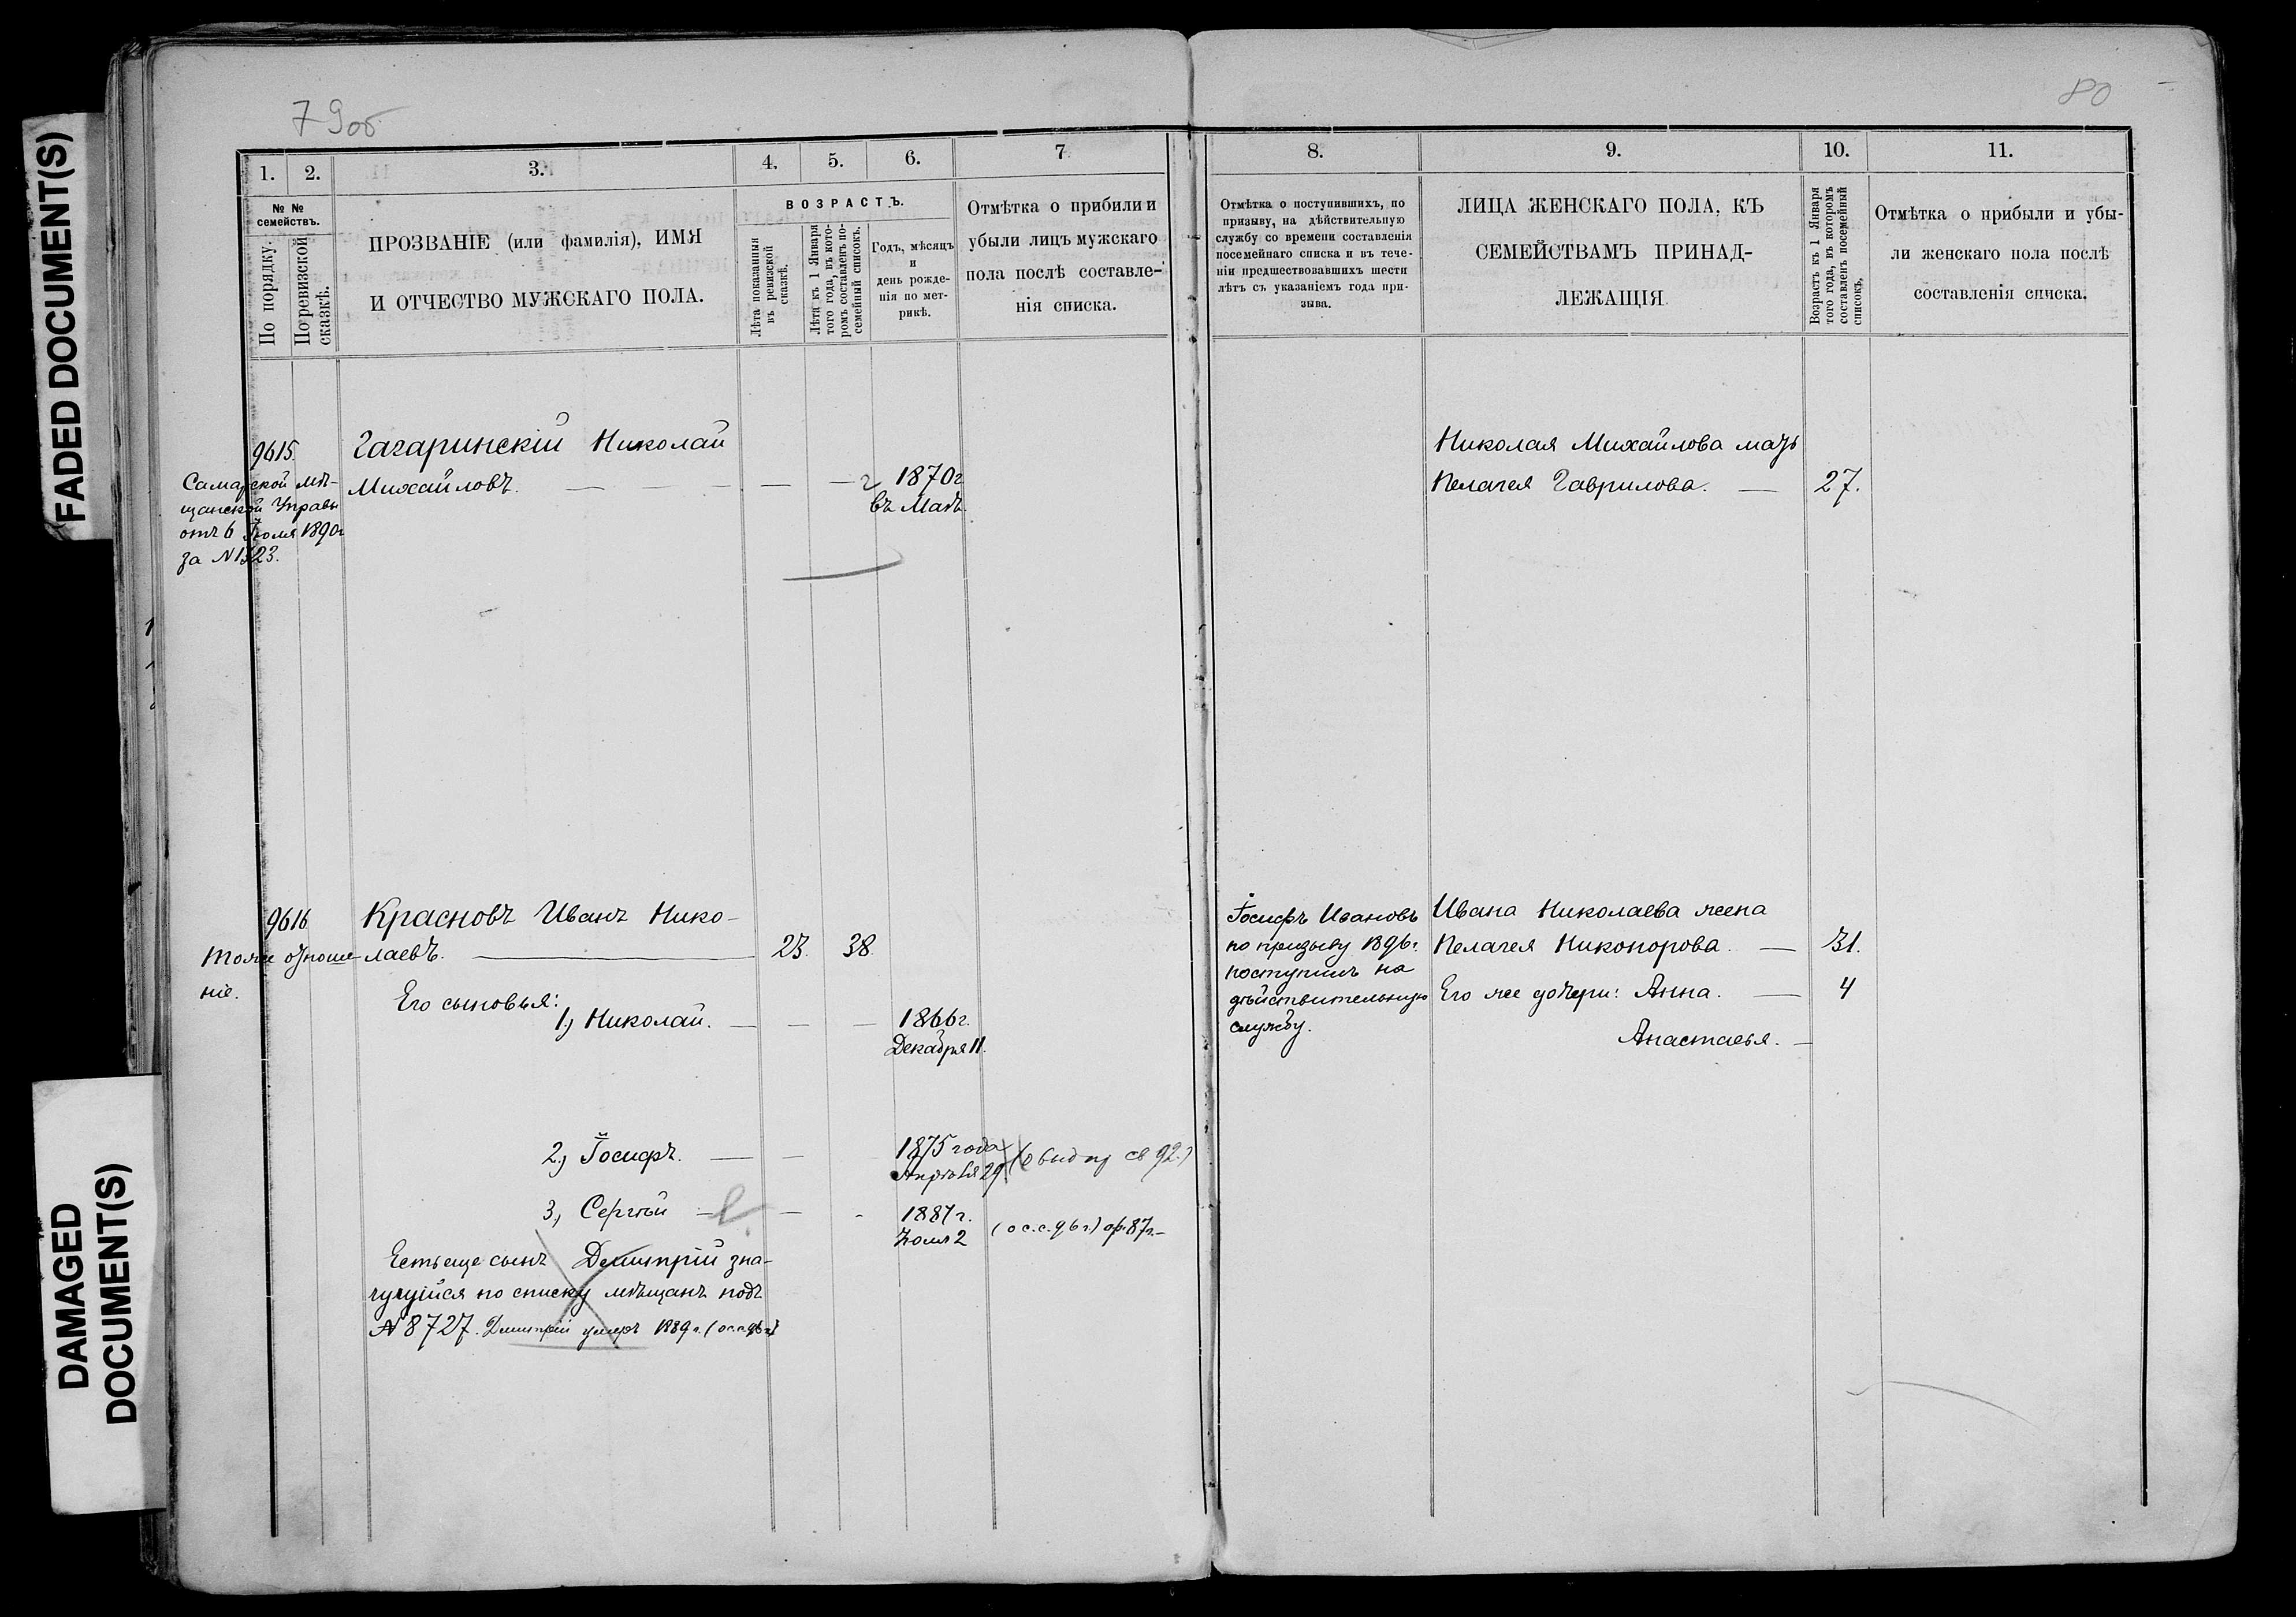 FADED DOCUMENT(S)
DAMAGED
DOCUMENT(S)
79об
1.
2.
3.
4.
5.
6.
7.
№ №
семействъ.
По порядку.
По ревизской
сказкѣ.
ПРОЗВАНІЕ (или фамилія), ИМЯ
И ОТЧЕСТВО МУЖСКАГО ПОЛА.
ВОЗРАСТЪ.
Лѣта показанныя
въ ревизской
сказкѣ.
Лѣта къ 1 Января
того года, въ кото-
ромъ составленъ по-
семейный списокъ.
Годъ, мѣсяцъ
и
день рожде-
нія по мет-
рикѣ.
Отмѣтка о прибыли и
убыли лицъ мужскаго
пола послѣ составле-
нія списка.
9615
Гагаринскій Николай
Михайловъ.
Самарской мѣ-
щанской Управы
отъ 6 Іюля 1890г
за №1323.
1870г
въ Маѣ.
9616
Красновъ Иванъ Нико-
лаевъ.
23.
38.
Тоже отноше-
ніе.
Его сыновья:
1) Николай.
1866г.
Декабря 11.
2) Іосифъ.
1875 года
Апрѣля 29
св 92.)
3) Сергѣй
1881г.
Іюля 2
(о с.с. 96 г.) ор. 87г.
Есть еще сынъ Димитрій зна-
чущійся по списку мѣщанъ подъ
№ 8727. Димитрій умеръ 1889г. (о с.с. 96 г.)
80
8.
9.
10.
11.
Отмѣтка о поступившихъ, по
призыву, на дѣйствительную
службу со времени составленія
посемейнаго списка и въ тече-
ніи предшествовавшихъ шести
лѣтъ съ указаніемъ года при-
зыва.
ЛИЦА ЖЕНСКАГО ПОЛА, КЪ
СЕМЕЙСТВАМЪ ПРИНАД-
ЛЕЖАЩІЯ.
Возрастъ къ 1 Января
того года, въ которомъ
составленъ посемейный
списокъ.
Отмѣтка о прибыли и убы-
ли женскаго пола послѣ
составленія списка.
Николая Михайлова мать
Пелагея Гаврилова.
27.
Іосифъ Ивановъ
по призыву 1896г.
поступилъ на
дѣйствительную
службу.
Ивана Николаева жена
Пелагея Никонорова.
31.
Его же дочери: Анна.
4
Анастасья.